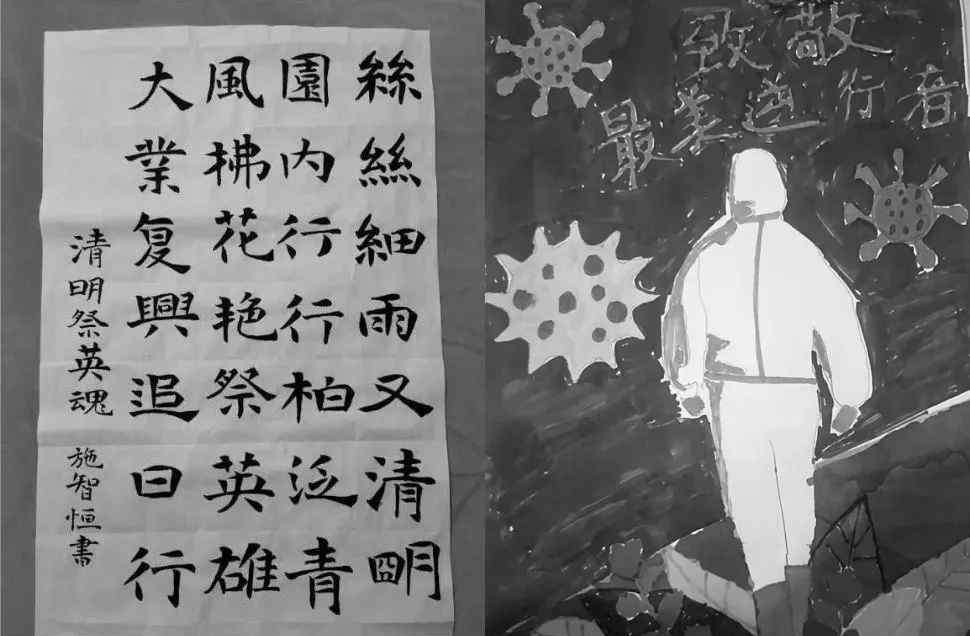 絲絲細雨又清明
園内行行柏泛青
風拂花艳祭英雄
大業复興追日行
清明祭英魂
施智恒書
致敬
最美逆行者